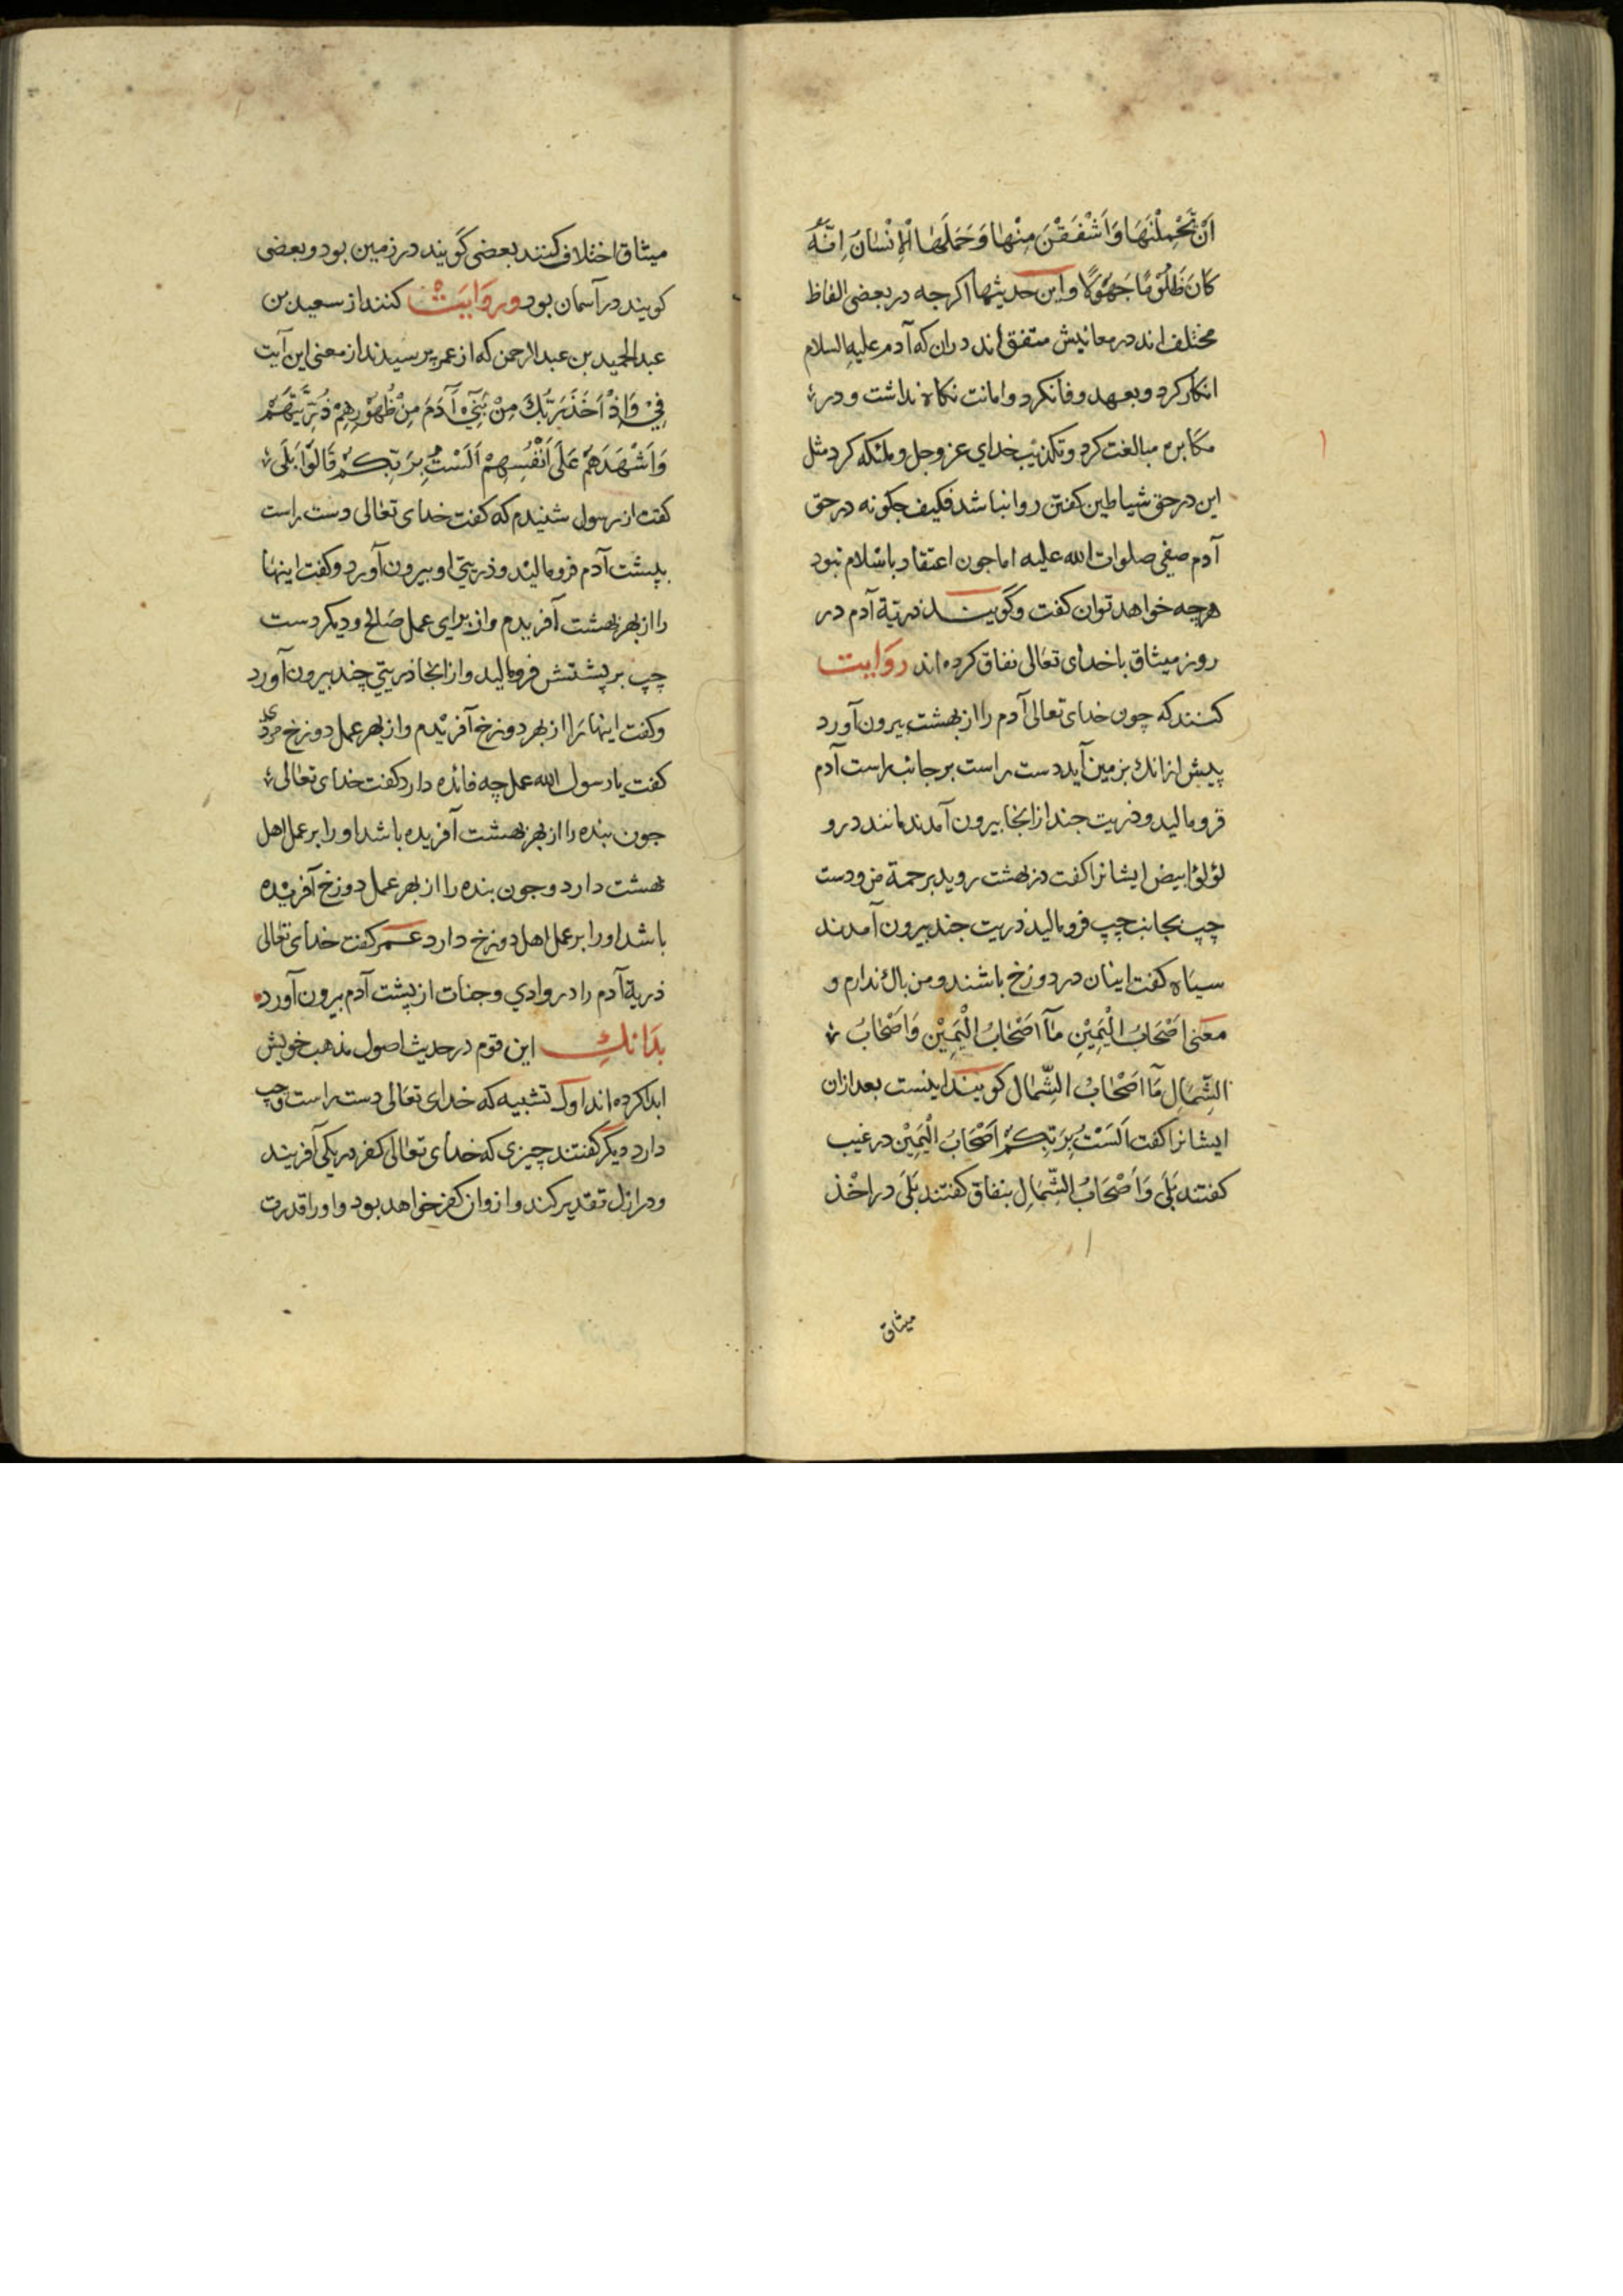 اَنْ تَحْمِلْنَهَا وَاَشْفَقْنَ مِنْهَا وَحَمَلَهَا الْاِنْسَانُ اِنَّهُ
كَانَ ظَلُوْمًا جَهُوْلًا واین حدیثها اکرجه در بعضی الفاظ
مختلف اند در معانیش متفق اند دران که آدم علیه السلام
انکار کرد وبعهد وفا نکرد وامانت نکاه نداشت ودر
مکابره مبالغت کرد وتکذیب خدای عز وجل وملئکه کرد مثل
این در حق شیاطین کفتن روا نباشد فکیف جکونه در حق
آدم صفی صلوات الله علیه اما جون اعتقاد باسلام نبود
هرچه خواهد توان کفت وکویند ذریّة آدم در
روز میثاق با خدای تعالی نفاق کرده اند روایت
کنند که چون خدای تعالی آدم را از بهشت بیرون آورد
پیش از انک بزمین آید دست راست بر جانب راست آدم
فرو مالید وذریت جند از انجا بیرون آمدند مانند درو
لؤلؤ ابیض ایشانرا کفت در بهشت روید برحمة من ودست
چپ بجانب چپ فرو مالید ذریت جند بیرون آمدند
سیاه کفت اینان در دوزخ باشند ومن باک ندارم و
معنی اَصْحَابُ الْیَمِیْنِ مَآ اَصْحَابُ الْیَمِیْنِ وَاَصْحَابُ
الشِّمَالِ مَآ اَصْحَابُ الشِّمَال کویند اینست بعد ازان
ایشانرا کفت اَلَسْتُ بِرَبِّكُمْ اَصْحَابُ الْیَمِیْن در غیب
کفتند بَلَی وَاَصْحَابُ الشِّمَالِ بنفاق کفتند بَلَی در اخذ
میثاق
میثاق اختلاف کنند بعضی کویند در زمین بود وبعضی
کویند در آسمان بود وروایت کنند از سعید بن
عبد الحمید بن عبد الرحمن که از عمر پرسیدند از معنی این آیت
فِیْ وَاِذْ اَخَذَ رَبُّكَ مِنْ بَنِیْ آدَمَ مِنْ ظُهُوْرِهِمْ ذُرِّیَّتَهُمْ
وَاَشْهَدَهُمْ عَلَی اَنْفُسِهِمْ اَلَسْتُ بِرَبِّكُمْ قَالُوْا بَلَی
کفت از رسول شنیدم که کفت خدای تعالی دست راست
بپشت آدم فرو مالید وذریتی او بیرون آورد وکفت اینها
را از بهر بهشت آفریدم واز برای عمل صالح ودیکر دست
چپ بر پشتش فرو مالید واز انجا ذریتی چند بیرون آورد
وکفت اینها را از بهر دوزخ آفریدم واز بهر عمل دوزخ مردی
کفت یا رسول الله عمل چه فائده دارد کفت خدای تعالی
جون بنده را از بهر بهشت آفریده باشد او را بر عمل اهل
بهشت دارد وجون بنده را از بهر عمل دوزخ آفریده
باشد او را بر عمل اهل دوزخ دارد عمر کفت خدای تعالی
ذریة آدم را در وادی وجنات از پشت آدم بیرون آورد
بدانك این قوم در حدیث اصول مذهب خویش
ابدا کرده اند اول تشبیه که خدای تعالی دست راست وچپ
دارد دیکر کفتند چیزی که خدای تعالی کفر در یکی آفریند
ودر ازل تقدیر کند واز وان کفر خواهد بود واو را قدرت